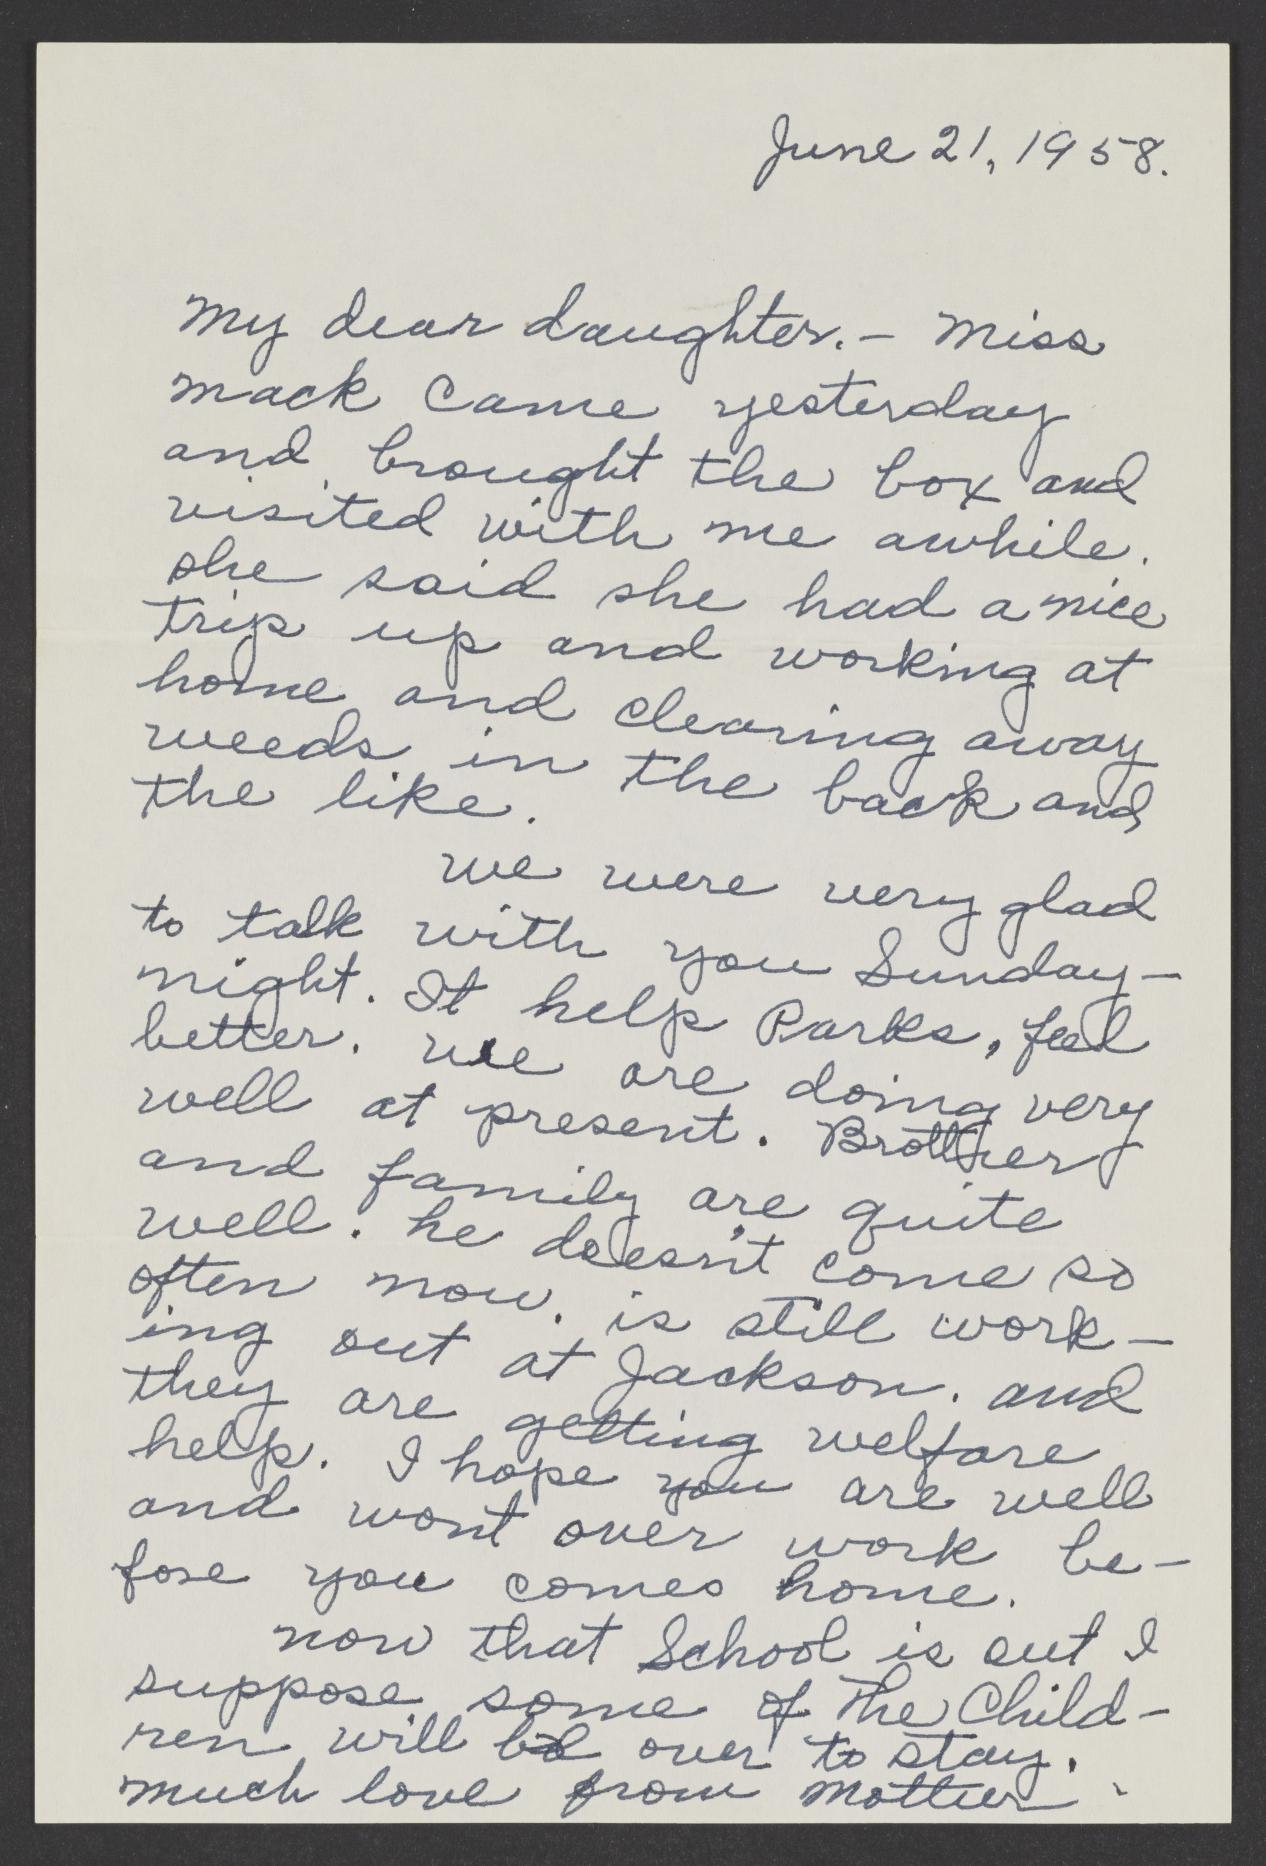 June 21, 1958.
My dear daughter. – Miss
Mack came yesterday
and brought the box and
visited with me awhile.
she said she had a nice
trip up and working at
home and clearing away
weeds in the back and
the like.
We were very glad
to talk with you Sunday –
night. It help Parks, feel
better. We are doing very
well at present. Brother
and family are quite
well. he doesn't come so
often now. is still work –
ing out at Jackson. and
they are getting welfare
help. I hope you are well
and wont over work be –
fore you comes home.
now that School is out I
suppose some of the Child –
ren will be over to stay.
Much love from Mother.